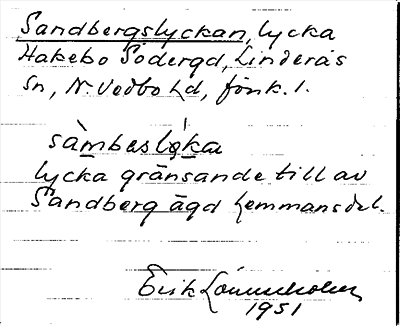 Sandbergslyckan, lycka
Hakebo Södergd, Linderås
Sn, N. Vedbo hd, Jönk. l.
sàmbesløka
lycka gränsande till av
Sandberg ägd hemmansdel.
Erik
1951